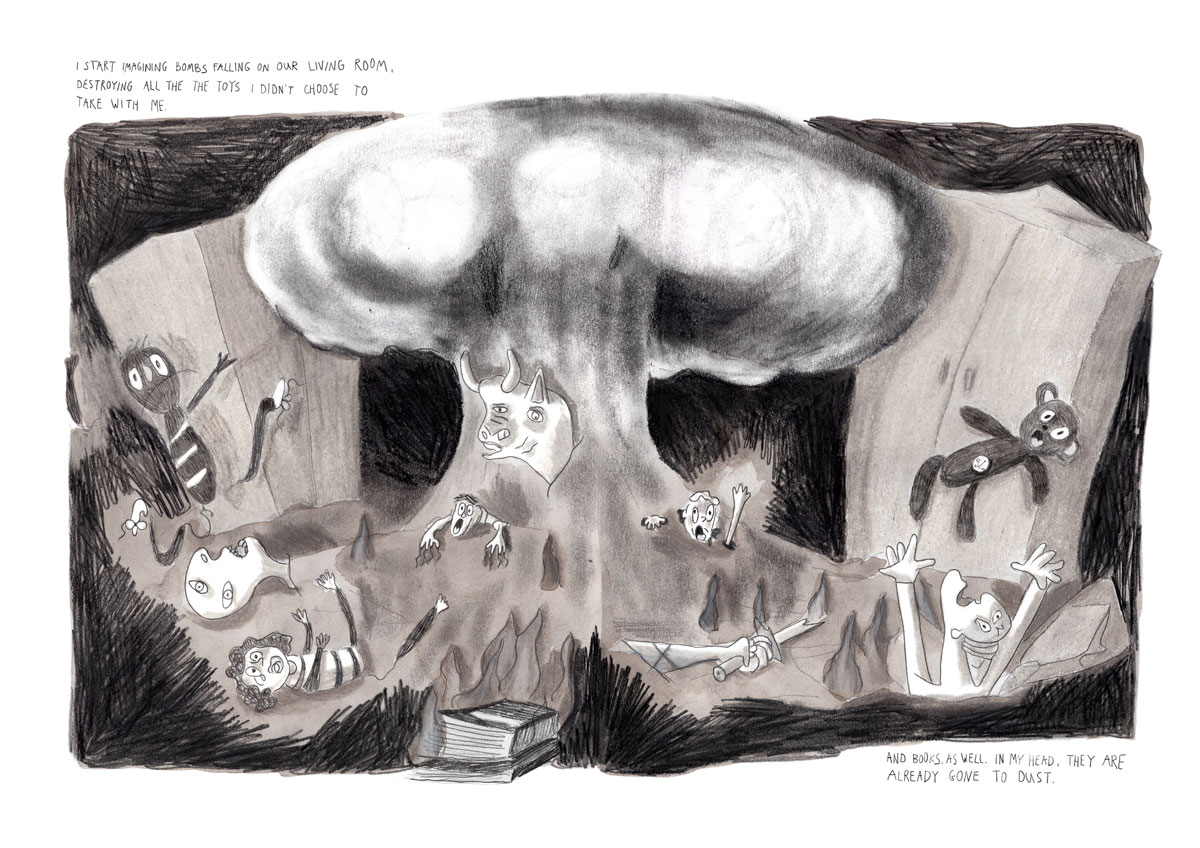 I START IMAGINING BOMBS FALLING ON OUR LIVING ROOM,
DESTROYING ALL THE THE TOYS I DIDN'T CHOOSE TO
TAKE WITH ME.
AND BOOKS, AS WELL. IN MY HEAD, THEY ARE
ALREADY GONE TO DUST.